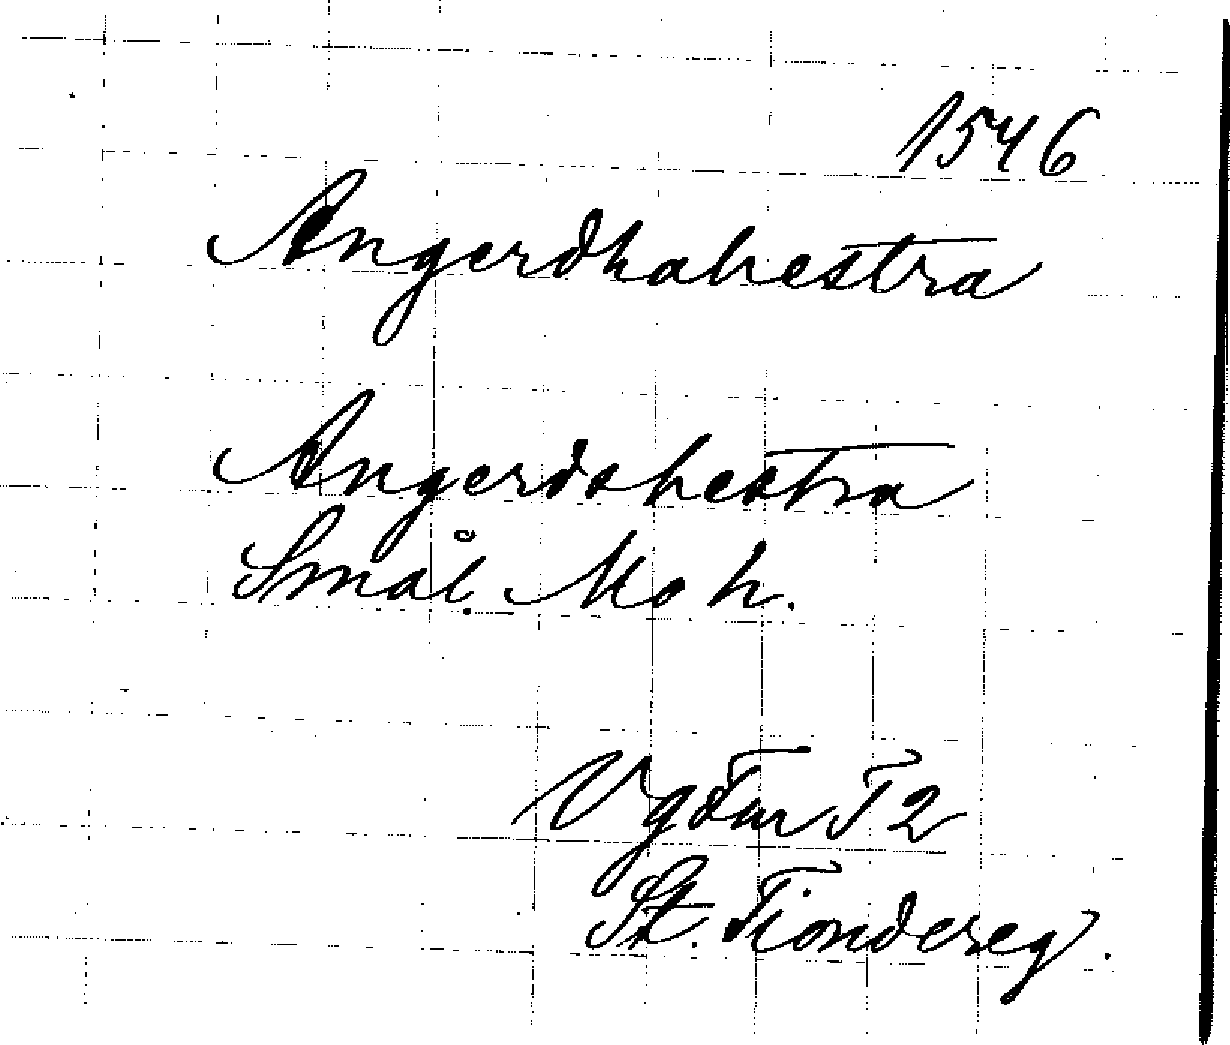 1546
Angerdhahestra
Angerdshestra
Smål. Mo h.
Vg T 2
St. Tiondereg.